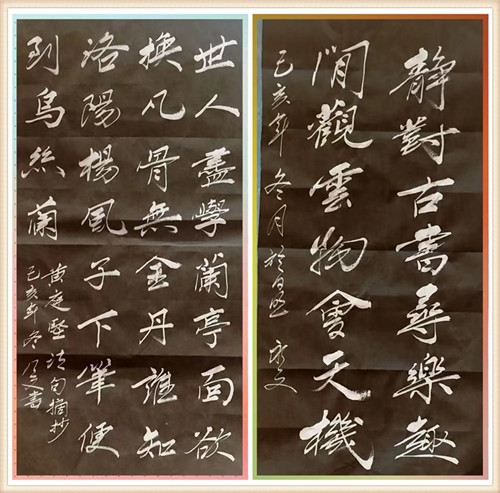 静對古書尋樂趣
閒觀雲物會天機
己亥年冬月於
世人盡學蘭亭面欲
換凡骨無金丹誰知
洛陽楊風子下筆便
到烏絲蘭
黄庭堅诗句摘抄
己亥年冬書